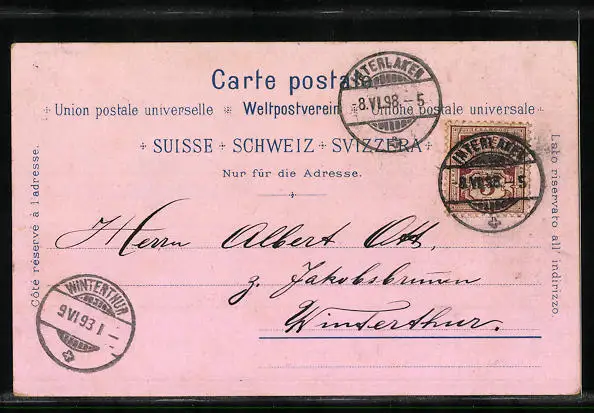 Carte postale
Union postale universelle * Weltpostverein * Unione postale universale
+ SUISSE + SCHWEIZ + SVIZZERA +
Nur für die Adresse.
Côté réservé à l'adresse.
Lato riservato all' indirizzo.
INTERLAKEN
8.VI.98.-5
INTERLAKEN
8.VI.98.-5
5
Herrn Albert Ott,
z. Jakobsbrunnen
Winterthur.
WINTERTHUR
9 VI 93 I